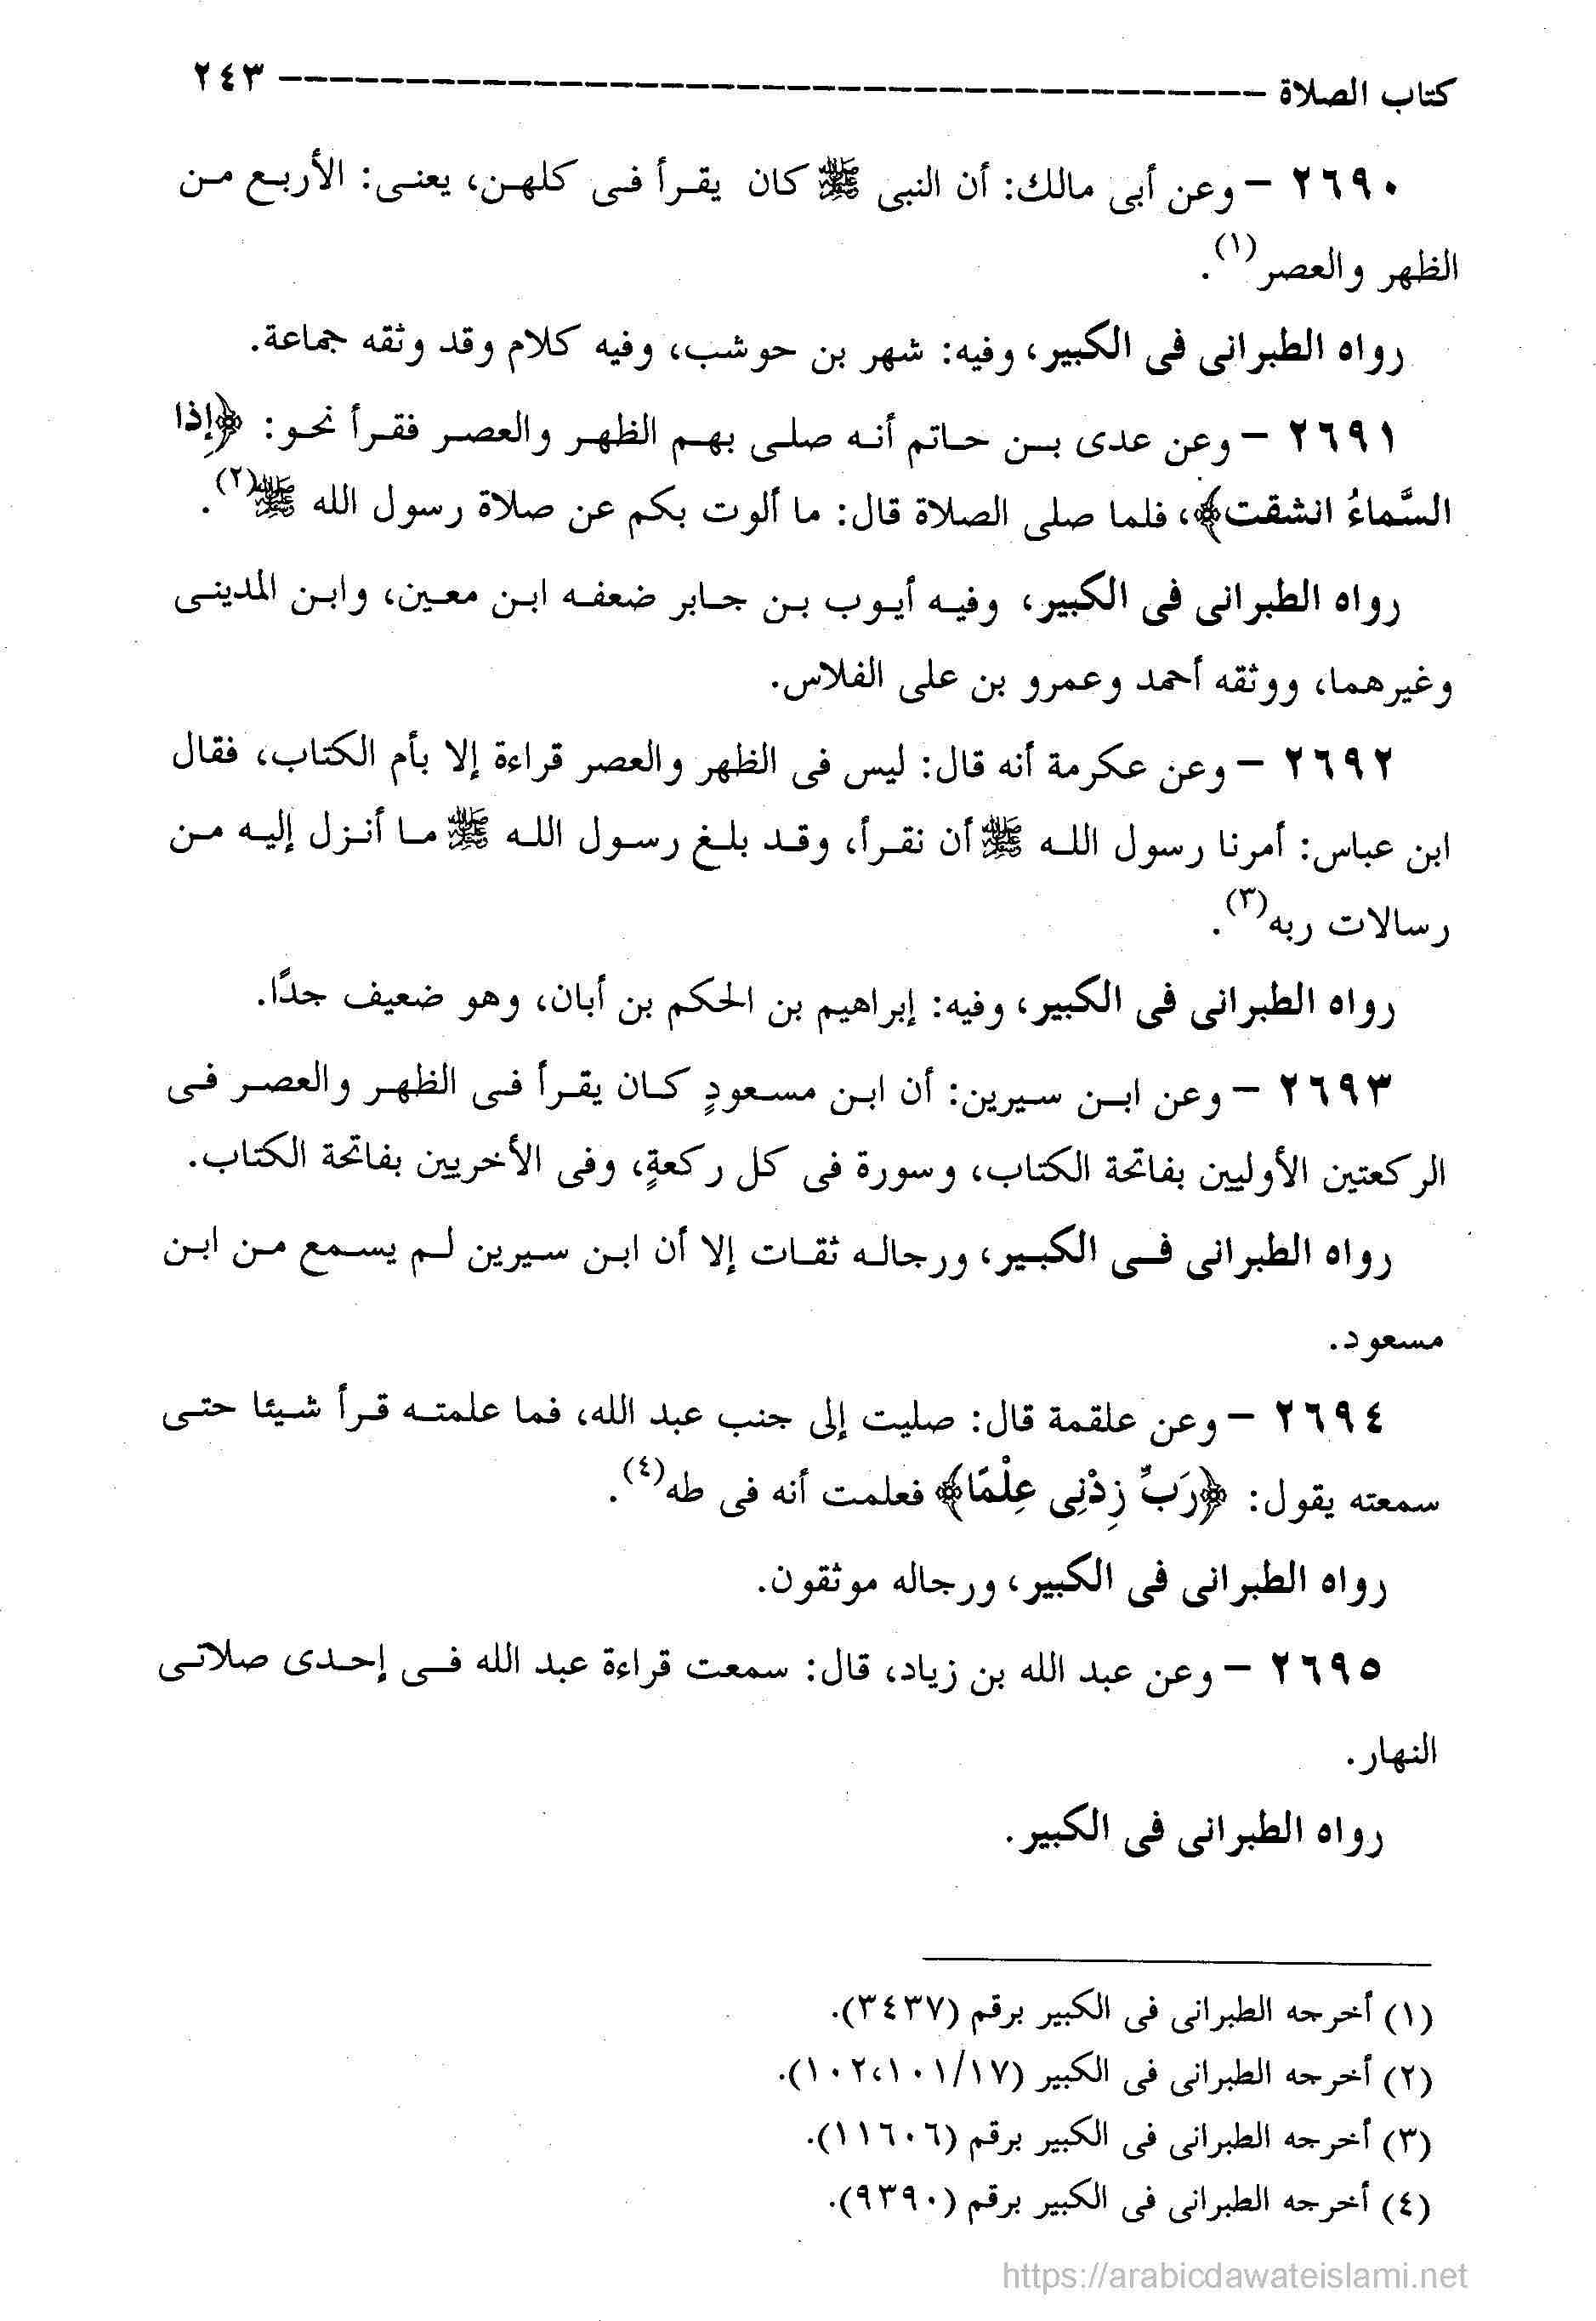 كتاب الصلاة ---------------------------------------- ٢٤٣
٢٦٩٠ - وعن أبى مالك: أن النبى ﷺ كان يقرأ فى كلهن، يعنى: الأربع من
الظهر والعصر(١).
رواه الطبرانى فى الكبير، وفيه: شهر بن حوشب، وفيه كلام وقد وثقه جماعة.
٢٦٩١ - وعن عدى بن حاتم أنه صلى بهم الظهر والعصر فقرأ نحو: ﴿إِذا
السَّماءُ انشقت﴾، فلما صلى الصلاة قال: ما ألوت بكم عن صلاة رسول الله ﷺ(٢).
رواه الطبرانى فى الكبير، وفيه أيوب بن جابر ضعفه ابن معين، وابن المدينى
وغيرهما، ووثقه أحمد وعمرو بن على الفلاس.
٢٦٩٢ - وعن عكرمة أنه قال: ليس فى الظهر والعصر قراءة إلا بأم الكتاب، فقال
ابن عباس: أمرنا رسول الله ﷺ أن نقرأ، وقد بلغ رسول الله ﷺ ما أنزل إليه من
رسالات ربه(٣).
رواه الطبرانى فى الكبير، وفيه: إبراهيم بن الحكم بن أبان، وهو ضعيف جدًا.
٢٦٩٣ - وعن ابن سيرين: أن ابن مسعودٍ كان يقرأ فى الظهر والعصر فى
الركعتين الأوليين بفاتحة الكتاب، وسورة فى كل ركعةٍ، وفى الأخريين بفاتحة الكتاب.
رواه الطبرانى فى الكبير، ورجاله ثقات إلا أن ابن سيرين لم يسمع من ابن
مسعود.
٢٦٩٤ - وعن علقمة قال: صليت إلى جنب عبد الله، فما علمته قرأ شيئا حتى
سمعته يقول: ﴿رَبِّ زِدْنِى عِلْمًا﴾ فعلمت أنه فى طه(٤).
رواه الطبرانى فى الكبير، ورجاله موثقون.
٢٦٩٥ - وعن عبد الله بن زياد، قال: سمعت قراءة عبد الله فى إحدى صلاتى
النهار.
رواه الطبرانى فى الكبير.
(١) أخرجه الطبرانى فى الكبير برقم (٣٤٣٧).
(٢) أخرجه الطبرانى فى الكبير (١٠٢،١٠١/١٧).
(٣) أخرجه الطبرانى فى الكبير برقم (١١٦٠٦).
(٤) أخرجه الطبرانى فى الكبير برقم (٩٣٩٠).
https://arabicdawateislami.net